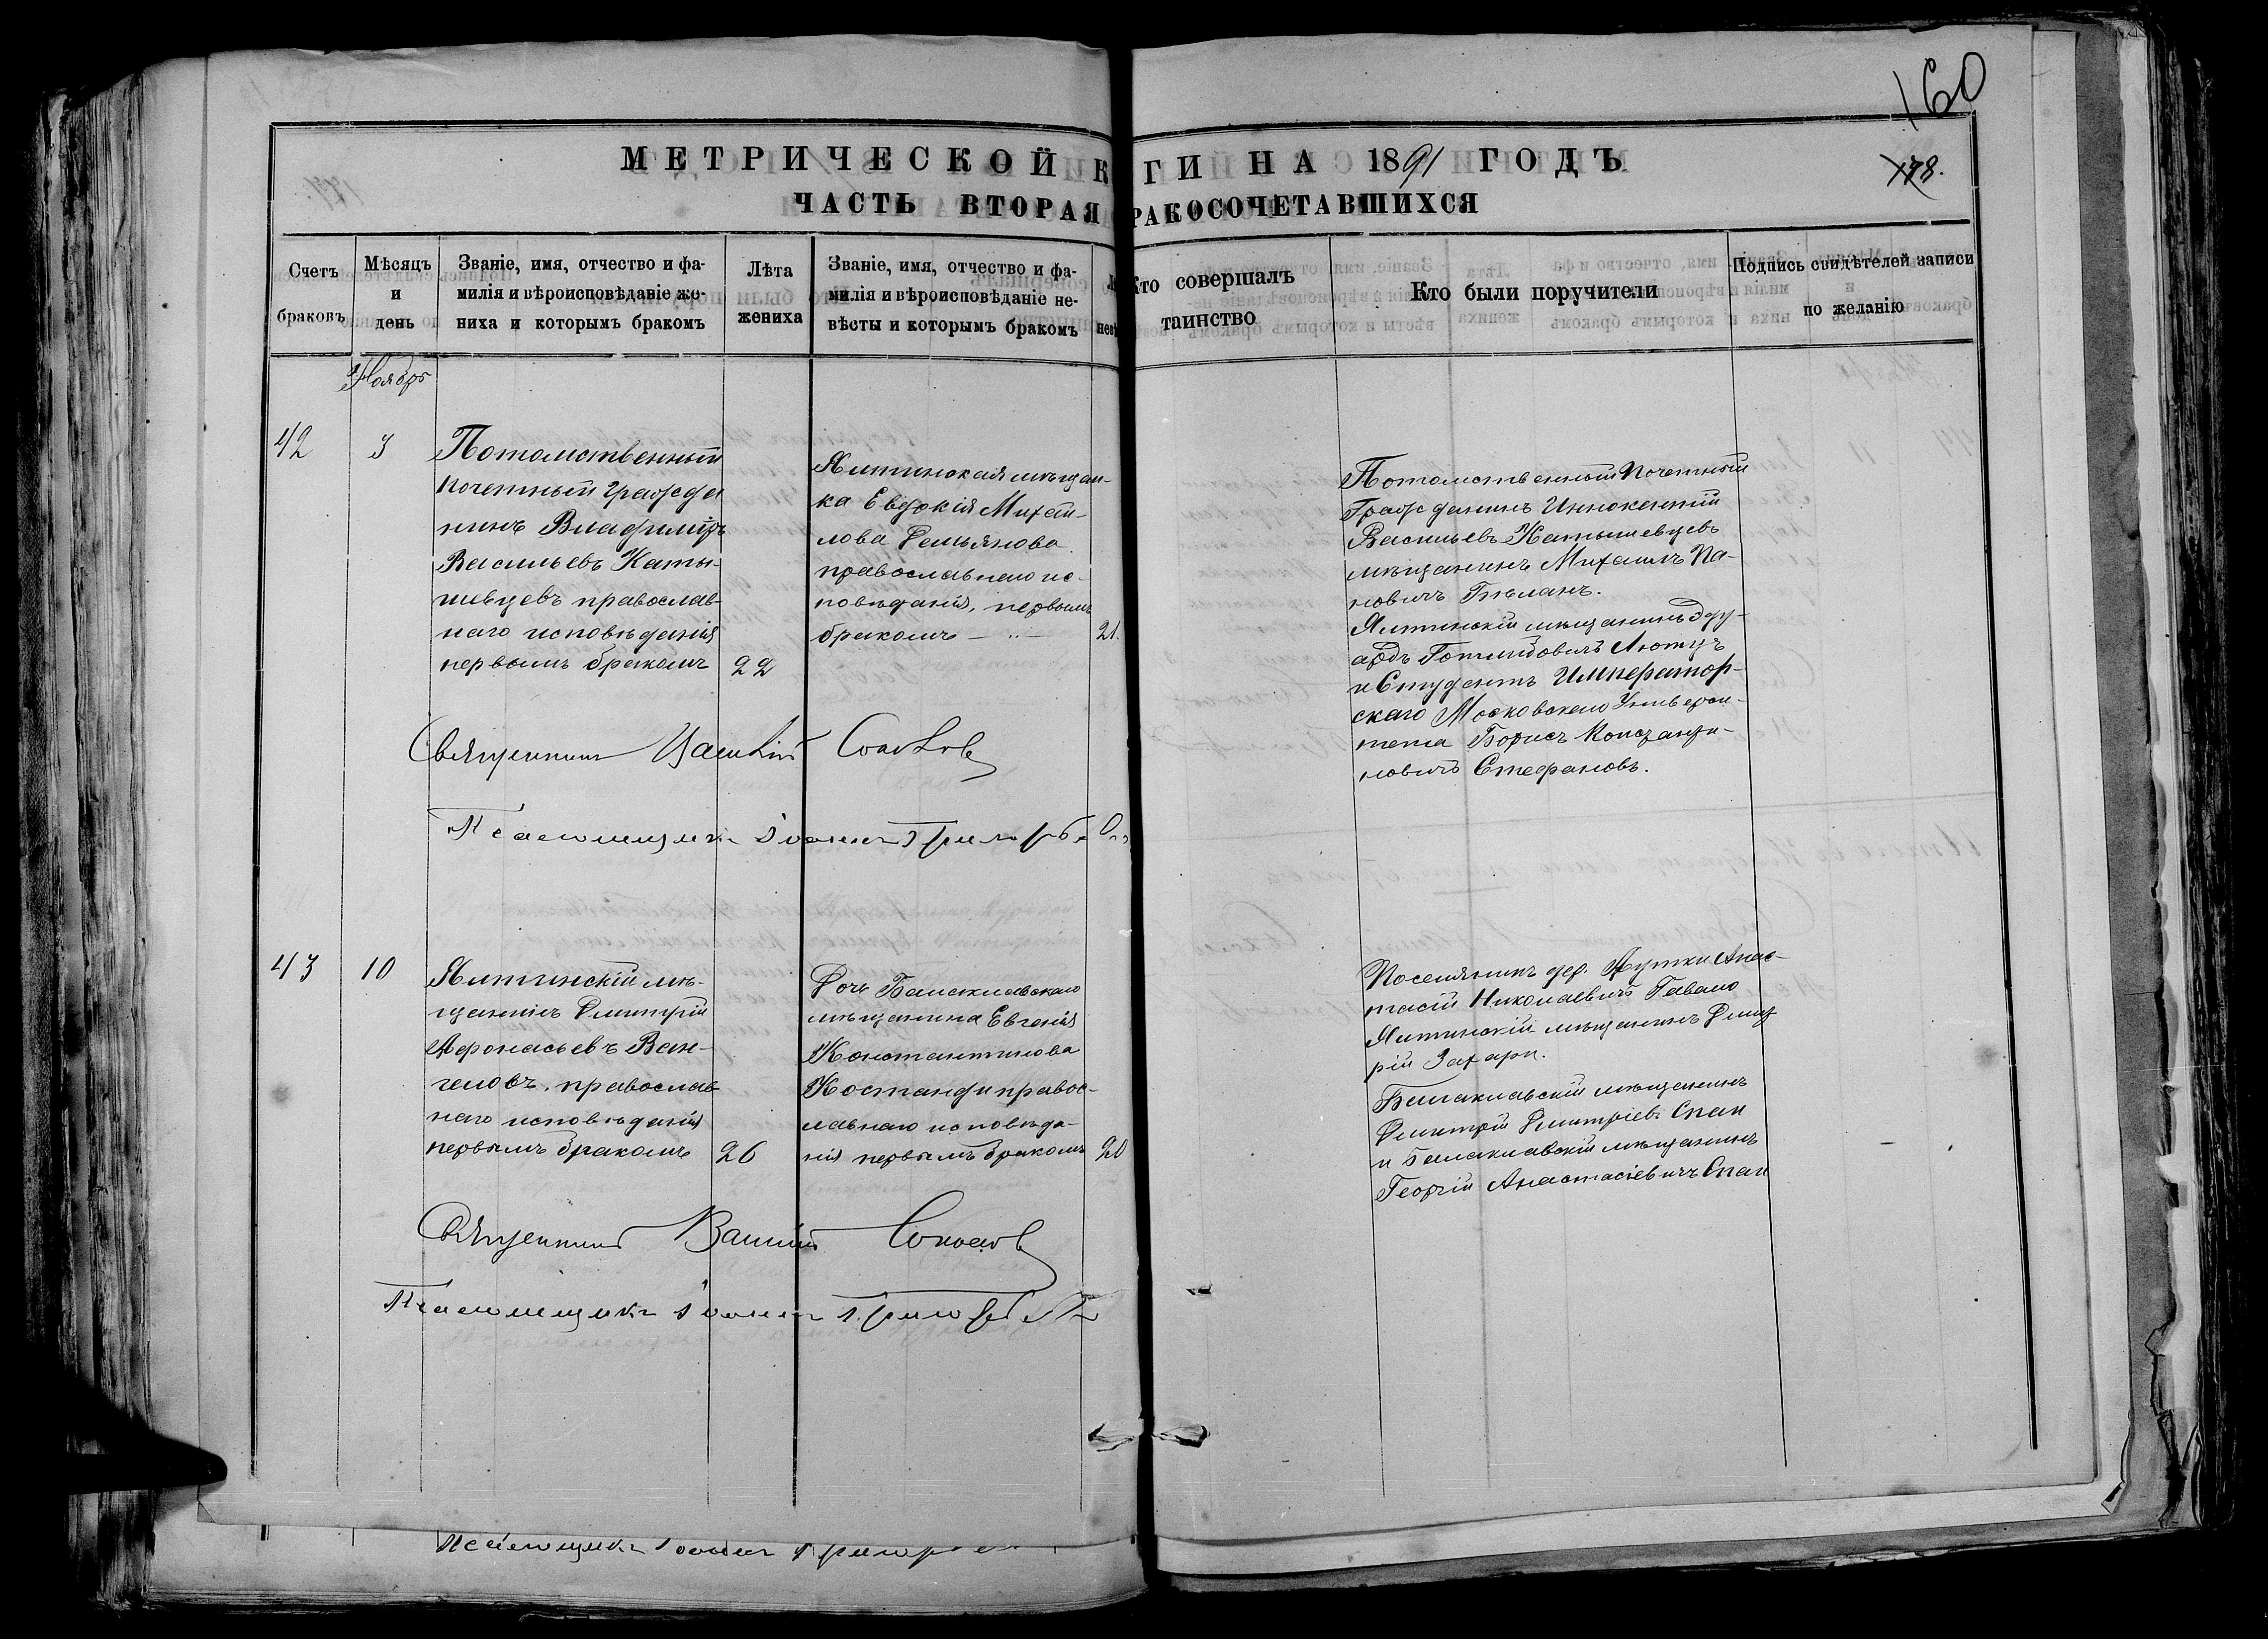 160
МЕТРИЧЕСКОЙ К ГИ НА 1891 ГОДЪ
178.
ЧАСТЬ ВТОРАЯ РАКОСОЧЕТАВШИХСЯ
Счетъ браковъ
Мѣсяцъ и день
Званіе, имя, отчество и фа-
милія и вѣроисповѣданіе же-
ниха и которымъ бракомъ
Лѣта жениха
Званіе, имя, отчество и фа-
милія и вѣроисповѣданіе не-
вѣсты и которымъ бракомъ
Кто совершалъ
таинство
Кто были поручители
Подпись свидѣтелей записи
по желанію
Ноябрь
42
3
Потомственный
почетный гражда
нинъ Владиміръ
Васильевъ Каты-
шевцевъ православ-
наго исповѣданія
первымъ бракомъ
22
Ялтинская мѣщан-
ка Евдокія Михай-
лова Демьянова
православнаго ис-
повѣданія, первымъ
бракомъ
21.
Потомственный почетный
Гражданинъ Иннокентій
Васильевъ Катышевцевъ
мѣщанинъ Михаилъ Па-
новичъ
Ялтинскій мѣщанинъ Эду-
ардъ Готлибовичъ Лютцъ
и Студентъ Император-
скаго Московскаго Универси-
тета Борисъ Константи-
новичъ Стефановъ.
Священникъ Соколовъ
Псаломщикъ Іоаннъ
43
10
Ялтинскій мѣ-
щанинъ Дмитрій
Афонасьевъ Ван-
геловъ, православ-
наго исповѣданія
первымъ бракомъ
26
Дочь Балаклавскаго
мѣщанина Евгенія
Константинова
Костанди правос-
лавнаго исповѣда-
нія первымъ бракомъ
20
Поселянинъ дер. Аутки Анас-
тасій Николаевичъ Гавало
Ялтинскій мѣщанинъ Дмит
рій Захари.
Балаклавскій мѣщанинъ
Дмитрій Дмитріевъ Спаи
и Балаклавскій мѣщанинъ
Георгій Анастасіевичъ Спаи
Священникъ Василій Соколовъ
Псаломщикъ Іоаннъ
Псаломщикъ Іоаннъ